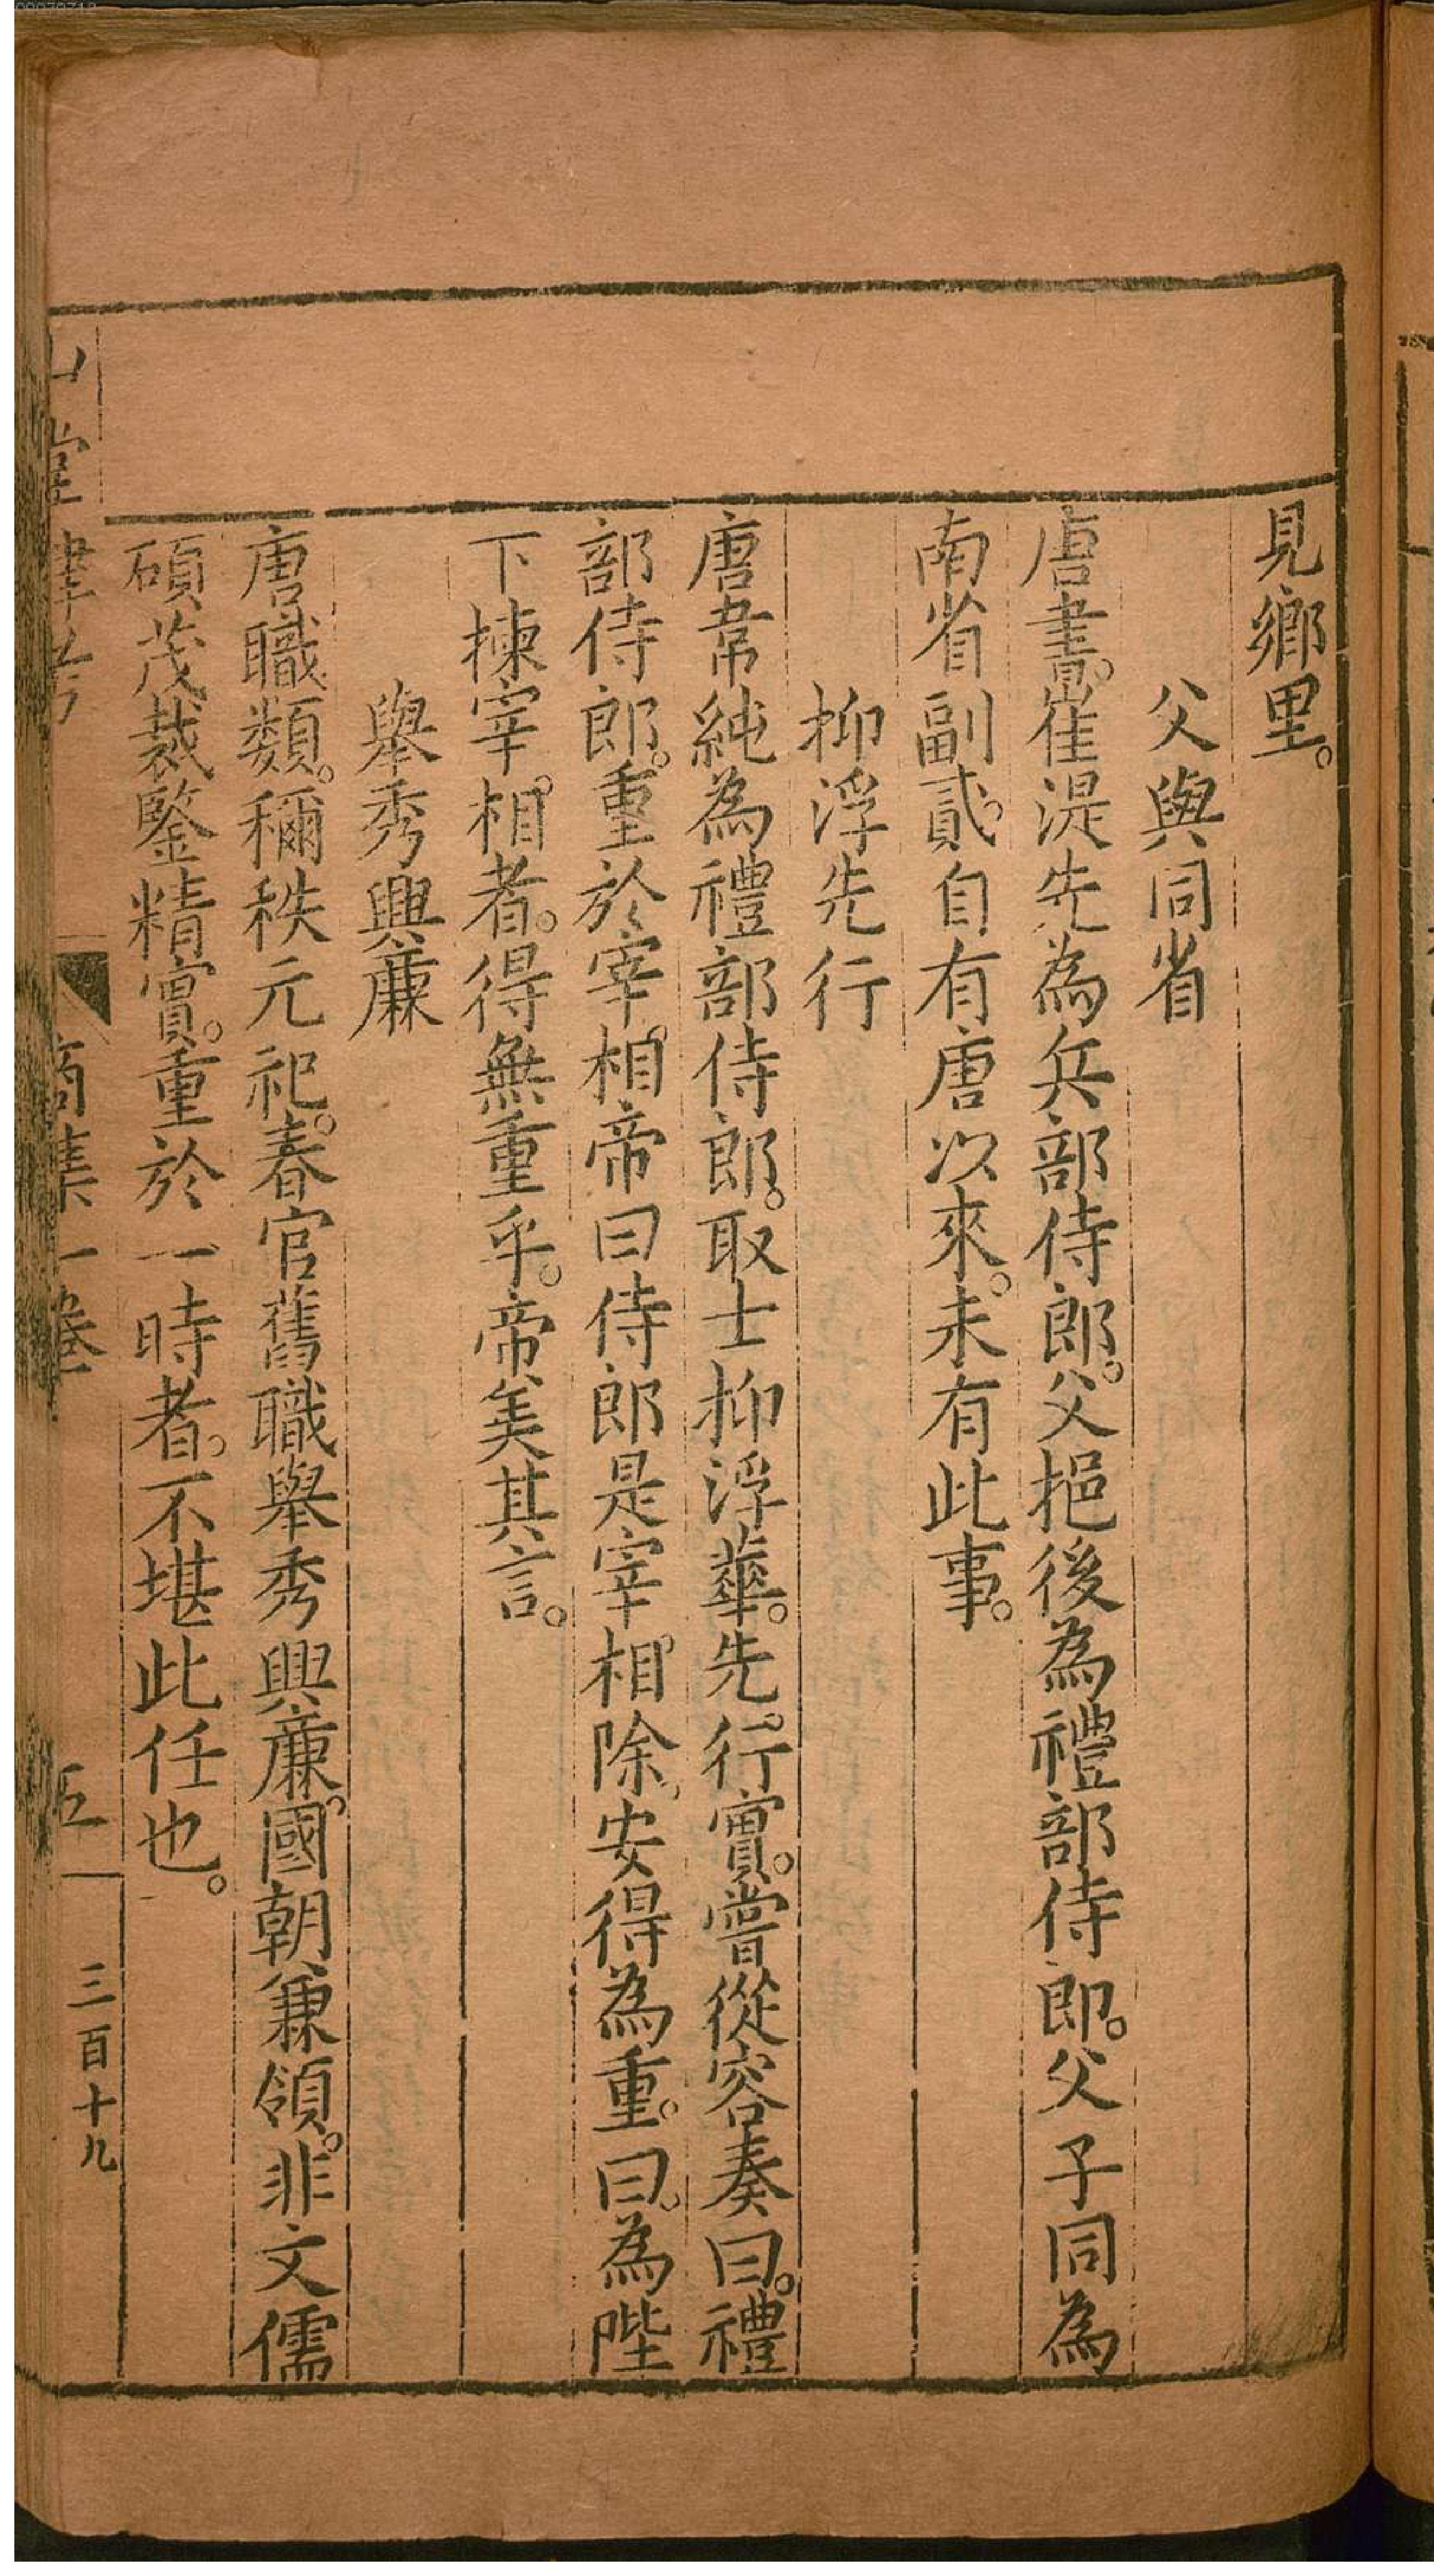 見鄉里。
父與同省
唐書。崔湜先為兵部侍郎。父挹後為禮部侍郎。父子同為
南省副貳。自有唐以來。未有此事。
抑浮先行
唐韋純為禮部侍郎。取士抑浮華。先行實。嘗從容奏曰。禮
部侍郎。重於宰相。帝曰侍郎是宰相除。安得為重。曰。為陛
下揀宰相者。得無重乎。帝美其言。
舉秀興廉
唐職類。稱秩元祀。春官舊職舉秀興廉。國朝兼領。非文儒
碩茂裁鑒精實。重於一時者。不堪此任也。
山堂肆考
商集一卷
五
三百十九